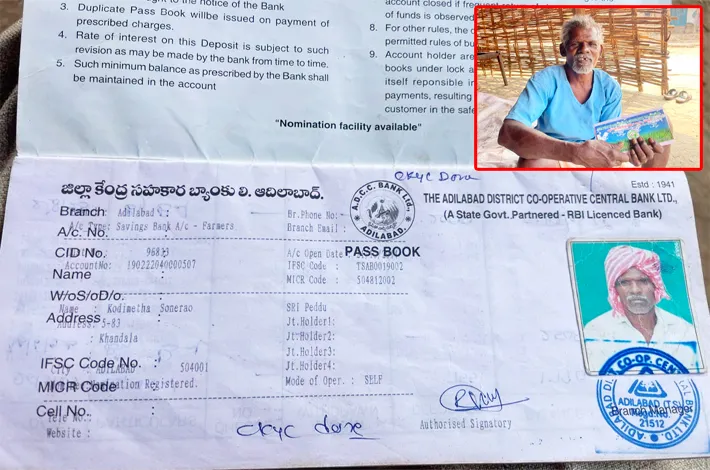 the notice of the Bank
3. Duplicate Pass Book willbe issued on payment of
prescribed charges.
4. Rate of interest on this Deposit is subject to such
revision as may be made by the bank from time to time.
5. Such minimum balance as prescribed by the Bank shall
be maintained in the account
account closed if
of funds is observed
8. For other rules, the
permitted rules of
9. Account holder are
books under lock
itself reponsible
payments, resulting
customer in the safe
"Nomination facility available"
CKYC Done
Estd : 1941
జిల్లా కేంద్ర సహకార బ్యాంకు లి. ఆదిలాబాద్.
A.D.C.C. BANK Ltd. ADILABAD.
THE ADILABAD DISTRICT CO-OPERATIVE CENTRAL BANK LTD.,
(A State Govt. Partnered - RBI Licenced Bank)
PASS BOOK
Branch Adilabad :
Br.Phone No:
A/c Type: Savings Bank A/c - Farmers
Branch Email :
A/c. No.
CID No. 96833
A/c Open Date
AccountNo: 190222040000507
IFSC Code : TSAB0019002
MICR Code : 504812002
Name
W/oS/oD/o.
Name : Kodimetha Sonerao
SRI Peddu
Address
Address: 5-83
Jt.Holder1:
: Khandala
Jt.Holder2:
Jt.Holder3:
IFSC Code No. :
City : ADILABAD 504001
Jt.Holder4:
MICR Code
Registered.
Mode of Oper. : SELF
Cell No.
Tele No.
Website :
CKYC done
Authorised Signatory
Branch Manager
ADILABAD (T.S)
Regd.No.
21512